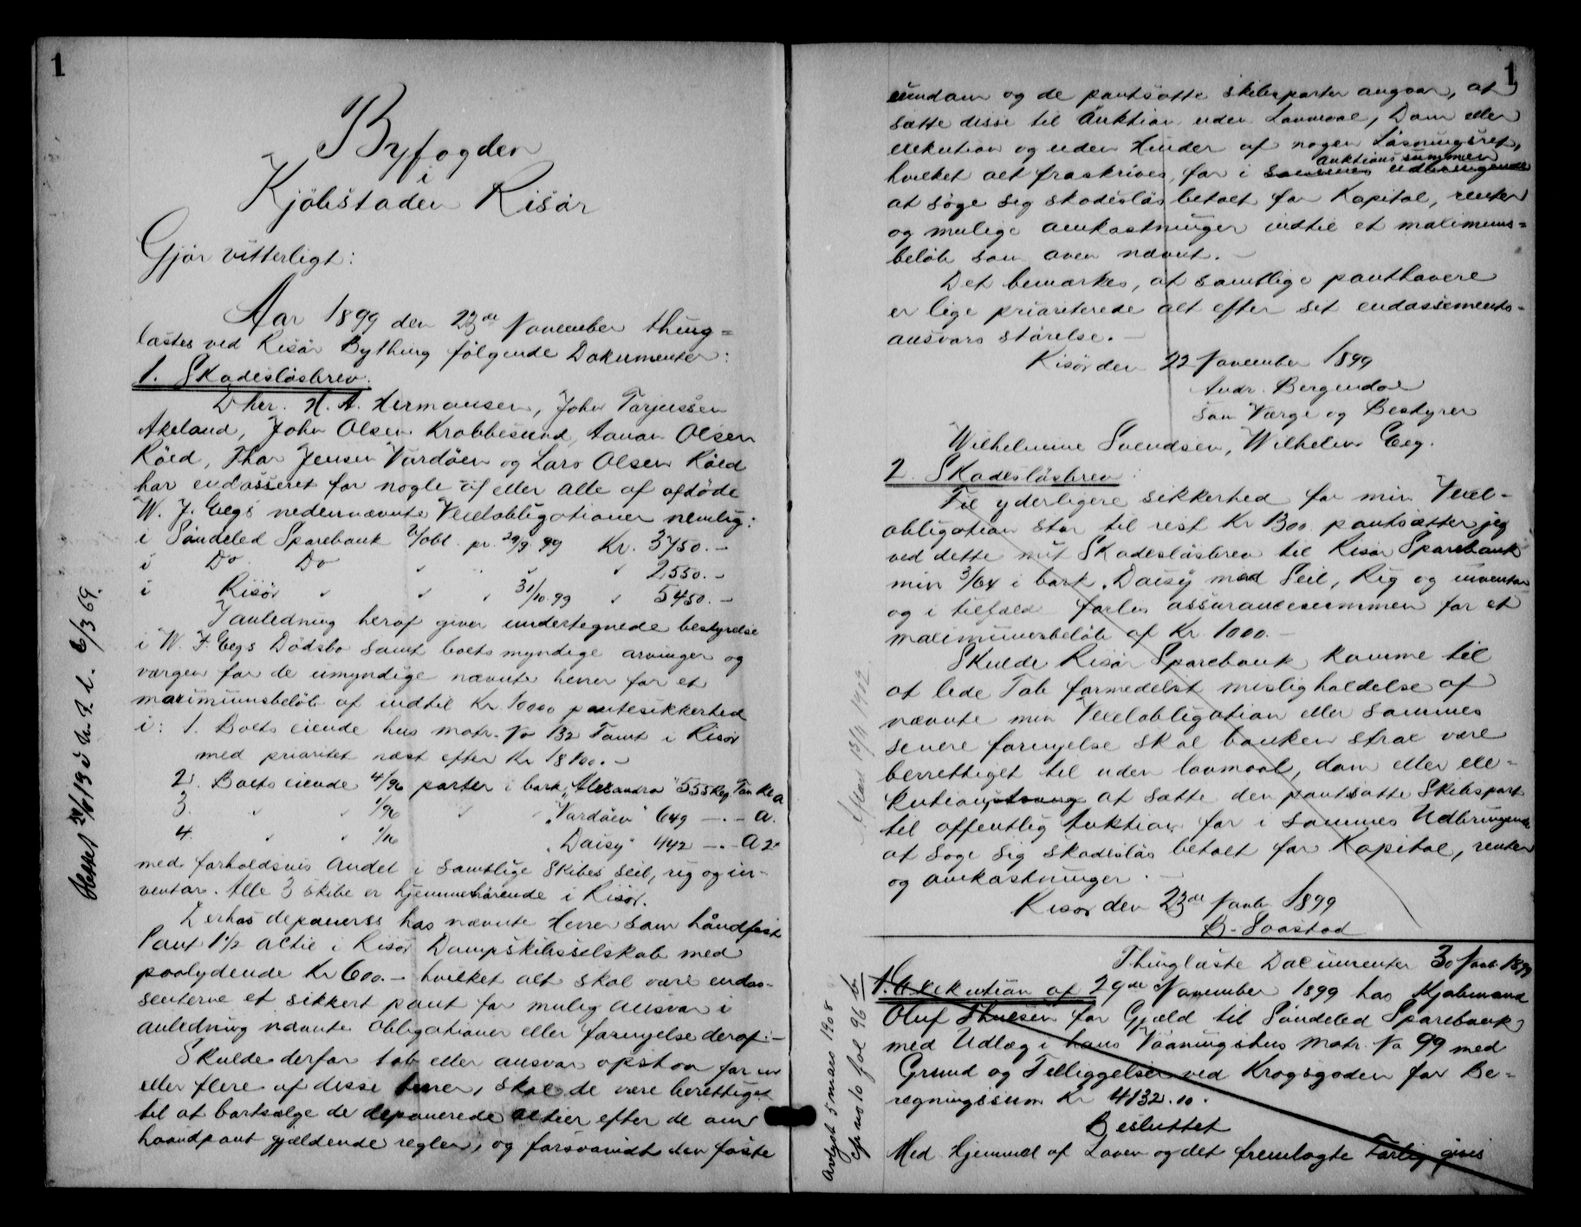 1
Byfogden
i
Kjöbstaden Risör
Gjör vitterligt:
Aar 1899 den 23de November thing=
læstes ved Risör Bything fölgende Dokumenter:
1. Skadeslösbrev.
Dhrr. H. A. Hermansen, John Tarjussen
Akeland, John Olsen Krabbesund, Olsen
Röed, Thor Jensen Vardöen og Lars Olsen Röed
har endosseret for nogle af eller alle af afdöde
W. J. Eegs nedennævnte Vexelobligationer nemlig:
i Söndeled Sparebank V/obl. pr. 29/9 99 Kr. 3750.-
i Do Do " " " " 2550.-
i Risör " " " 31/10.99 " 5450.-
I anledning heraf giver undertegnede bestyrelse
i W. J. Eegs Dödsbo samt boets myndige arvinger og
værgen for de umyndige nævnte herrer for et
maximumsbelöb af indtil Kr 10000 pantesikkerhed
i: 1. Boets eiende hus matr. No 132 Tomt i Risör
med prioritet næst efter Kr 18100.-
2. Boets eiende 4/96 parter i bark "Alexandra" 555 Reg Ton
3. " " 1/96 " " "Vardöen" 649 -.- A.
4. " " 1/16 "Daisy" 442 -.- A 2
med forholdsvis andel i samtlige Skibes seil, rig og in-
ventar. Alle 3 skibe er hjemmehörende i Risör.
Derhos deponeres hos nævnte Herrer som håndfaät
Pant 1 1/2 actie i Risör Dampskibsselskab med
paalydende Kr 600.- hvilket alt skal være endos-
senterne et sikkert pant for mulig ansvar i
anledning nævnte Obligationer eller fornyelse deraf.-
Skulde derfor tab eller ansvar opstaa for en
eller flere af disse herrer, skal de være berettiget
til at bortsælge de deponerede actier efter de om
haandpant gjældende regler, og forsaavidt den faste
Aflæst
1
eiendom og de pantsatte skibsparter angaar, at
sætte disse til Auktion uden Lovmaal, Dom eller
exekution og uden Hinder af nogen Lösningsret,
hvilket alt fraskrives, for i sammes udbringende auktionssummen
at söge sig skadeslös betalt for Kapital, renter
og mulige omkostninger indtil et maximums=
belöb som oven nævnt.-
Det bemærkes, at samtlige panthavere
er lige prioriterede alt efter sit endossements-
ansvars störelse.-
Risör den 22 November 1899
Andr. Bergendal
som Værge og Bestyrer
Wilhelmine Svendsen, Wilhelm Eeg.
2. Skadeslösbrev:
Til yderligere sikkerhed for min Vexel-
obligation stor til rest Kr 1300 pantsætter jeg
ved dette mit Skadeslösbrev til Risör Sparebank
min 3/64 i bark "Daisy" med Seil, Rig og inventar
og i tilfælde forlis assurancesummen for et
maximumsbelöb af Kr. 1000.-
Skulde Risör Sparebank komme til
at lide Tab formedelst misligholdelse af
nævnte min Vexelobligation eller sammes
senere fornyelse skal banken strax være
berettiget til uden lovmaal, dom eller exe-
kution at sætte den pantsatte Skibspart
til offentlig Auktion for i sammes Udbringende
at söge sig skadeslös betalt for Kapital, renter
og omkostninger.-
Risör den 23de Novb 1899
B. Soastad
Thinglæste Documenter 30 Novb 1899
1. Exekution af 29de November 1899 hos Kjöbmand
Oluf Thuesen for Gjæld til Söndeled Sparebank
med Udlæg i hans Vaaningshus Matr. No 99 med
Grund og Tilliggelser ved Kragsgaden for Be-
regningssum Kr 4132.10.
Besluttet
Med Hjemmel af Loven og det fremlagte Forlig givis
Avlyst 5 mars 1908
fol 96 b.